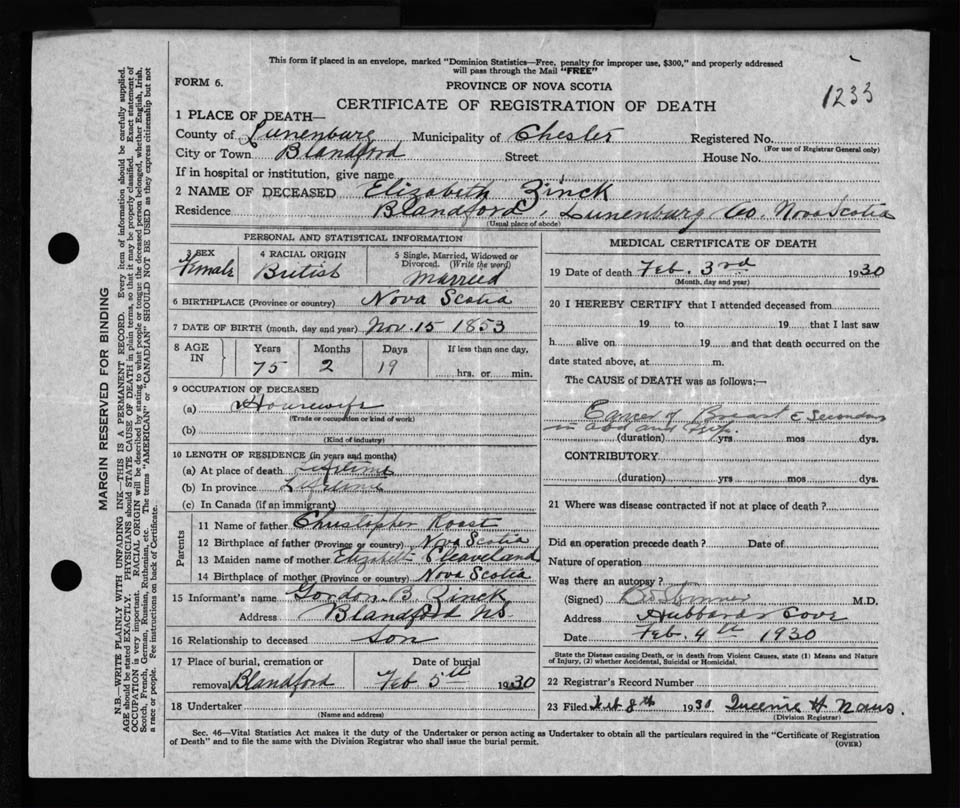 This form if placed in an envelope, marked "Dominion Statistics—Free, penalty for improper use, $300," and properly addressed
will pass through the Mail "FREE"
FORM 6.
PROVINCE OF NOVA SCOTIA
1233
CERTIFICATE OF REGISTRATION OF DEATH
1 PLACE OF DEATH—
County of Lunenburg Municipality of Chester Registered No.
(For use of Registrar General only)
City or Town Blandford Street House No.
If in hospital or institution, give name
2 NAME OF DECEASED Elizabeth Zinck
Residence Blandford, Lunenburg Co. Nova Scotia
(Usual place of abode)
PERSONAL AND STATISTICAL INFORMATION
3 SEX
Female
4 RACIAL ORIGIN
British
5 Single, Married, Widowed or
Divorced. (Write the word)
Married
6 BIRTHPLACE (Province or country) Nova Scotia
7 DATE OF BIRTH (month, day and year) Nov. 15 1853
8 AGE
IN
Years Months Days If less than one day,
75 2 19 hrs. or min.
9 OCCUPATION OF DECEASED
(a) Housewife
(Trade or occupation or kind of work)
(b)
(Kind of industry)
10 LENGTH OF RESIDENCE (in years and months)
(a) At place of death Lifetime
(b) In province Lifetime
(c) In Canada (if an immigrant)
Parents
11 Name of father Christopher Roast
12 Birthplace of father (Province or country) Nova Scotia
13 Maiden name of mother Elizabeth Cleaveland
14 Birthplace of mother (Province or country) Nova Scotia
15 Informant's name Gordon B. Zinck
Address Blandford NS
16 Relationship to deceased Son
17 Place of burial, cremation or Date of burial
removal Blandford Feb 5th 1930
18 Undertaker
(Name and address)
MEDICAL CERTIFICATE OF DEATH
19 Date of death Feb. 3rd 1930
(Month, day and year)
20 I HEREBY CERTIFY that I attended deceased from
19 to 19 that I last saw
h alive on 19 and that death occurred on the
date stated above, at m.
The CAUSE of DEATH was as follows:—
Cancer of Breast & Secondary
in abd and
(duration) yrs mos dys.
CONTRIBUTORY
(duration) yrs mos dys.
21 Where was disease contracted if not at place of death?
Did an operation precede death? Date of
Nature of operation
Was there an autopsy?
(Signed) Skinner M.D.
Address Hubbards Cove
Date Feb. 4th 1930
State the Disease causing Death, or in death from Violent Causes, state (1) Means and Nature
of Injury, (2) whether Accidental, Suicidal or Homicidal.
22 Registrar's Record Number
23 Filed Feb. 8th 1930 Queenie H. Naus.
(Division Registrar)
Sec. 46—Vital Statistics Act makes it the duty of the Undertaker or person acting as Undertaker to obtain all the particulars required in the "Certificate of Registration
of Death" and to file the same with the Division Registrar who shall issue the burial permit.
(OVER)
MARGIN RESERVED FOR BINDING
N.B.—WRITE PLAINLY WITH UNFADING INK—THIS IS A PERMANENT RECORD. Every item of information should be carefully supplied.
AGE should be stated EXACTLY. PHYSICIANS should STATE CAUSE OF DEATH in plain terms, so that it may be properly classified. Exact statement of
OCCUPATION is very important. RACIAL ORIGIN will be described by stating to what people or tongue the deceased person belonged, whether English, Irish,
Scotch, French, German, Russian, Ruthenian, etc. The terms "AMERICAN" or "CANADIAN" SHOULD NOT BE USED as they express citizenship but not
a race or people. See instructions on back of Certificate.